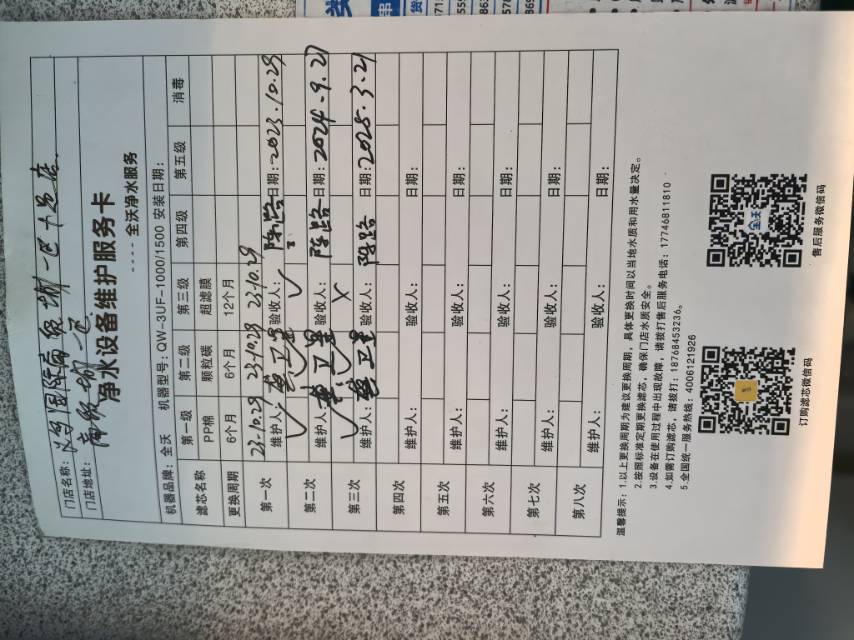 门店名称：
门店地址：
净水设备维护服务卡
----全沃净水服务
机器品牌：全沃 机器型号：QW-3UF-1000/1500 安装日期：
滤芯名称 第一级 第二级 第三级 第四级 第五级 消毒
PP棉 颗粒碳 超滤膜
更换周期 6个月 6个月 12个月
第一次 23.10.29 23.10.29 23.10.29
维护人： 验收人： 日期：2023.10.29
第二次 ✓ ✓ ✓
维护人： 卫星 验收人：陈路 日期：2024.9.21
第三次 ✓ ✓ ×
维护人： 卫星 验收人：陈路 日期：2025.3.21
第四次
维护人： 验收人： 日期：
第五次
维护人： 验收人： 日期：
第六次
维护人： 验收人： 日期：
第七次
维护人： 验收人： 日期：
第八次
维护人： 验收人： 日期：
温馨提示：1.以上更换周期为建议更换周期，具体更换时间以当地水质和用水量决定。
2.按照标准定期更换滤芯，确保门店水质安全。
3.设备在使用过程中出现故障，请拨打售后服务电话：17746811810
4.如需订购滤芯，请拨打：18768453236。
5.全国统一服务热线：4006121926
全沃
订购滤芯微信码
售后服务微信码